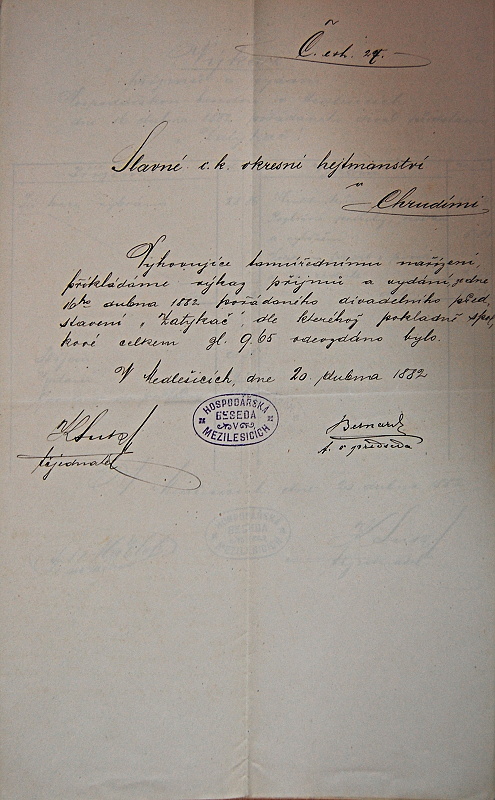 Č. exh. 27.
Slavné c. k. okresní hejtmanství
v Chrudimi
Vyhovujíce tamúřednímu nařízení
přikládáme výkaz příjmů a vydání, dne
16ho dubna 1882 pořádaného divadelního před
stavení „Zatykač", dle kteréhož pokladně spol
kové celkem zl. 9,65 odevzdáno bylo.
V Medlešicích, dne 20. dubna 1882
HOSPODÁŘSKÁ
BESEDA
V
MEZILESICÍCH
jednatel
Bernard
t. č. předseda